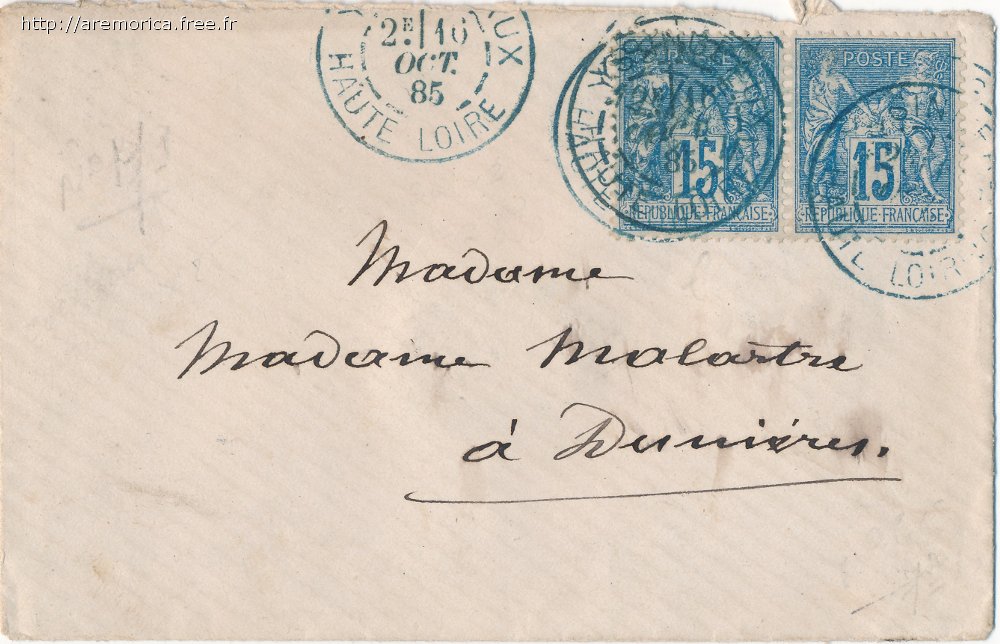 http://aremorica.free.fr
UX
2E 16
OCT.
85
HAUTE LOIRE
POSTE
15
REPUBLIQUE FRANÇAISE
15
REPUBLIQUE FRANÇAISE
85
HAUTE LOIRE
Madame
Madame Malartre
à Dunières.